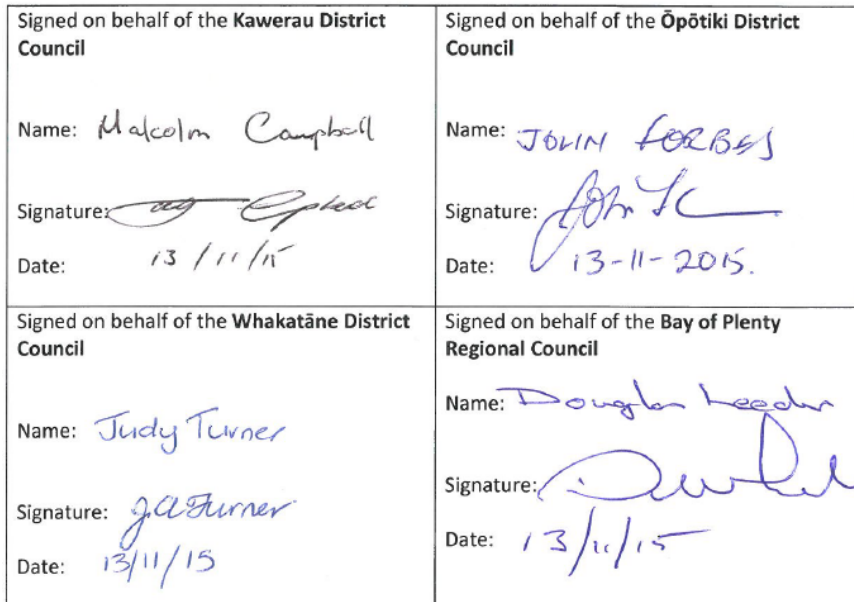 Signed on behalf of the Kawerau District
Council
Name: Malcolm Campbell
Signature:
Date: 13/11/15
Signed on behalf of the Ōpōtiki District
Council
Name: JOHN FORBES
Signature:
Date: 13-11-2015.
Signed on behalf of the Whakatāne District
Council
Name: Judy Turner
Signature: J.A Turner
Date: 13/11/15
Signed on behalf of the Bay of Plenty
Regional Council
Name: Douglas Leeder
Signature:
Date: 13/11/15